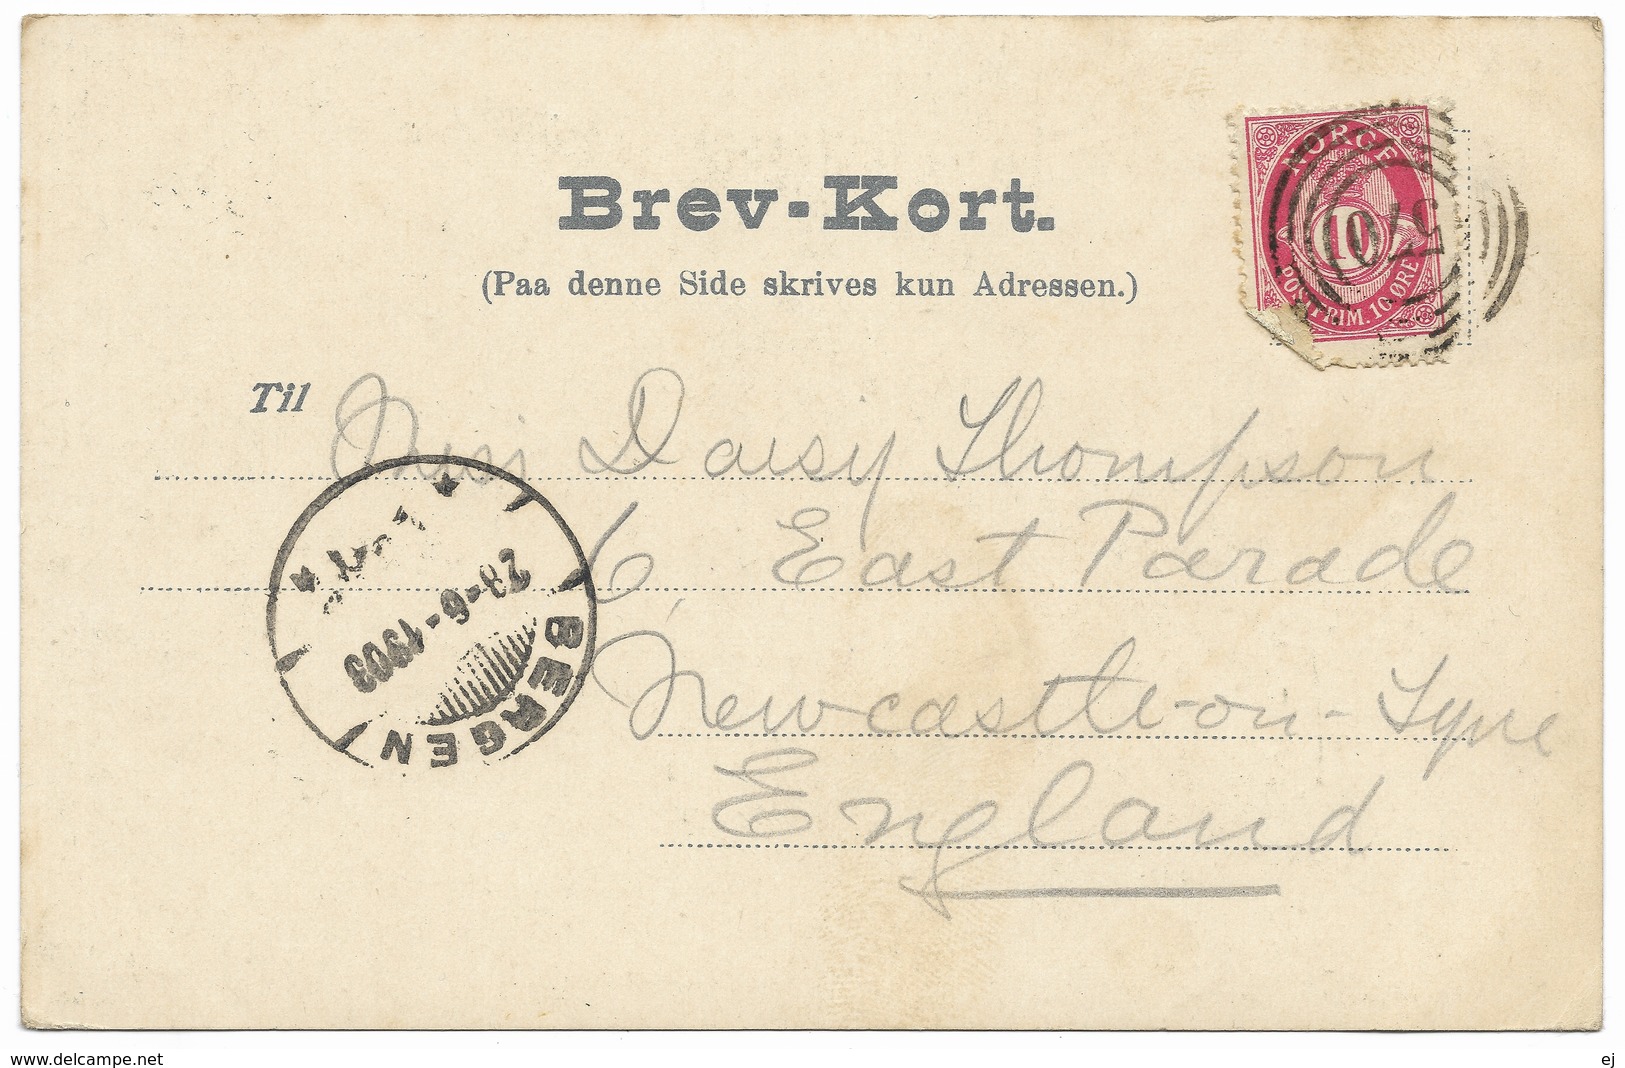 Brev-Kort.
(Paa denne Side skrives kun Adressen.)
NORGE
10
POSTFRIM. 10 ØRE
Til Miss Daisy Thompson
6, East Parade
Newcastle-on-Tyne
England
BERGEN
23-6-1903
www.delcampe.net
ej